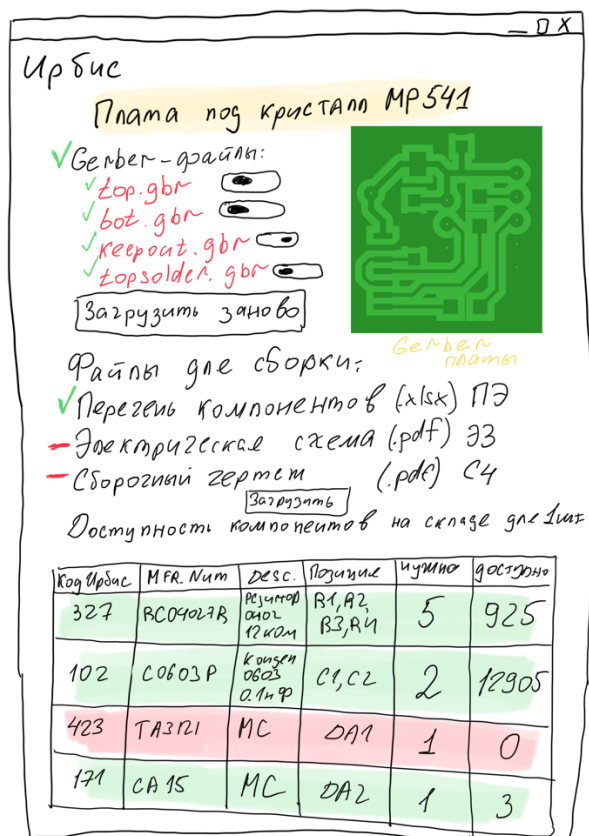 _ □ X
Ирбис
Плата под кристалл MP541
Gerber-файлы:
top.gbr
bot.gbr
keepout.gbr
topsolder.gbr
Загрузить заново
Gerber
платы
Файлы для сборки:
Перечень компонентов (.xlsx) ПЭ
Электрическая схема (.pdf) Э3
Сборочный чертеж (.pdf) СЧ
Загрузить
Доступность компонентов на складе для 1шт
Код Ирбис MFR. Num Desc. Позиция нужно доступно
327 RC04027R Резистор 0402 12кОм R1, R2, R3, R4 5 925
102 C0603P Конден 0603 0.1нФ C1, C2 2 12905
423 MC DA1 1 0
171 CA15 MC DA2 1 3